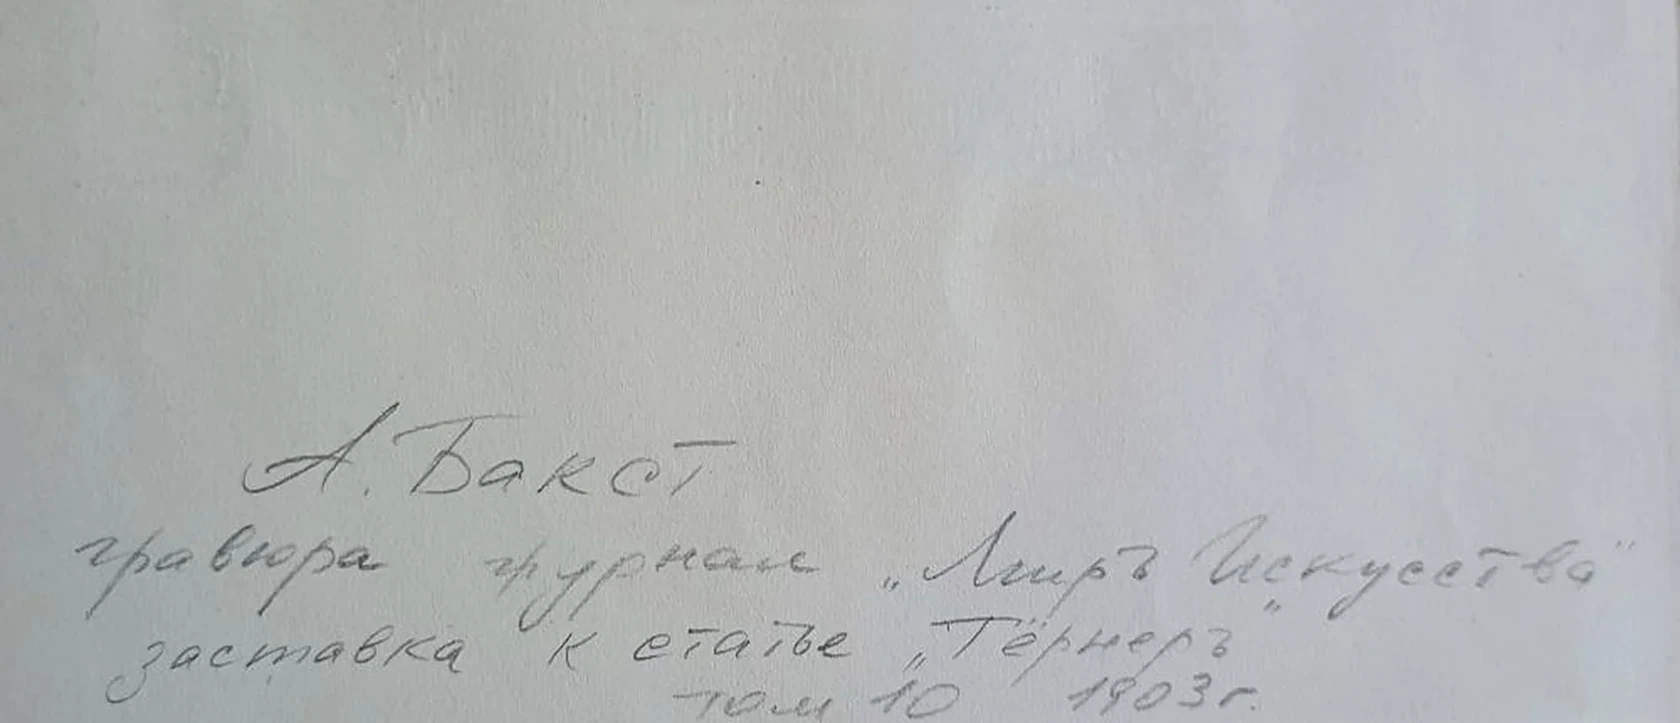 А. Бакст
гравюра журнал „Миръ Искусства“
заставка к статье „Тёрнеръ“
том 10 1903 г.